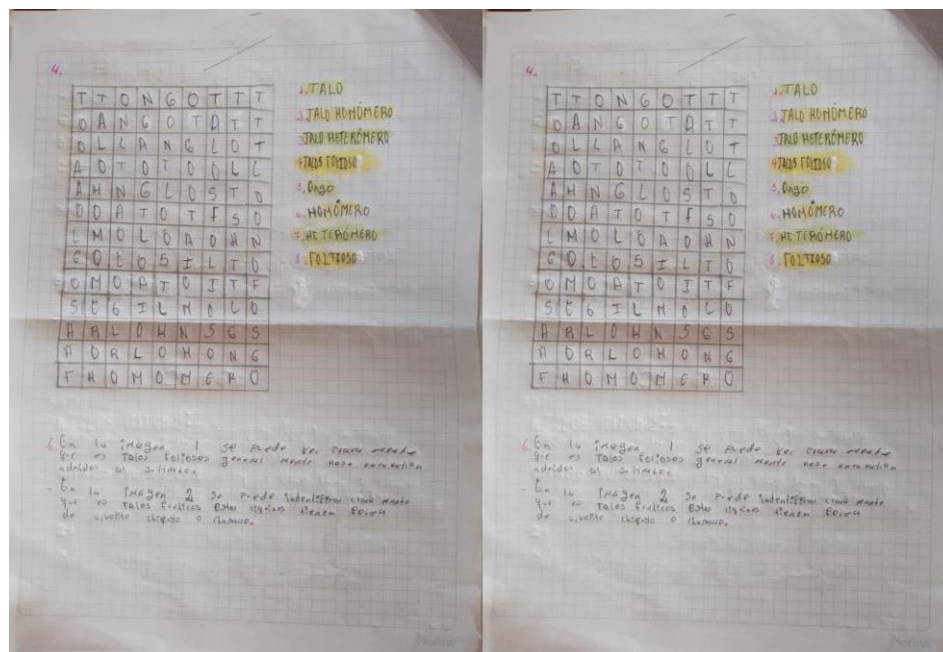 4.
T T O N G O T T T
O A N G O T O T T
O L L A N G L O T
A O T O T O O L L
A H N G L O S T O
O O A T O T F S O
L M O L O A O H N
G O L O S I L T O
O M O A T O I T F
S E G I L M O L O
A R L O H N S G S
A O R L O H O N G
F H O M O M E R O
1. TALO
2. TALO HOMÓMERO
3. TALO HETERÓMERO
4. TALOS FOLIOSO
5. Ongo
6. HOMÓMERO
7. HETERÓMERO
8. FOLIOSO
6. En la imagen 1 se puede ver clara mente
que es Talos Foliosos general mente
- En la Imagen 2 se puede indentificar clara mente
que es Talos estos tienen forma
de o
4.
T T O N G O T T T
O A N G O T O T T
O L L A N G L O T
A O T O T O O L L
A H N G L O S T O
O O A T O T F S O
L M O L O A O H N
G O L O S I L T O
O M O A T O I T F
S E G I L M O L O
A R L O H N S G S
A O R L O H O N G
F H O M O M E R O
1. TALO
2. TALO HOMÓMERO
3. TALO HETERÓMERO
4. TALOS FOLIOSO
5. Ongo
6. HOMÓMERO
7. HETERÓMERO
8. FOLIOSO
6. En la imagen 1 se puede ver clara mente
que es Talos Foliosos general mente
- En la Imagen 2 se puede indentificar clara mente
que es Talos estos tienen forma
de o